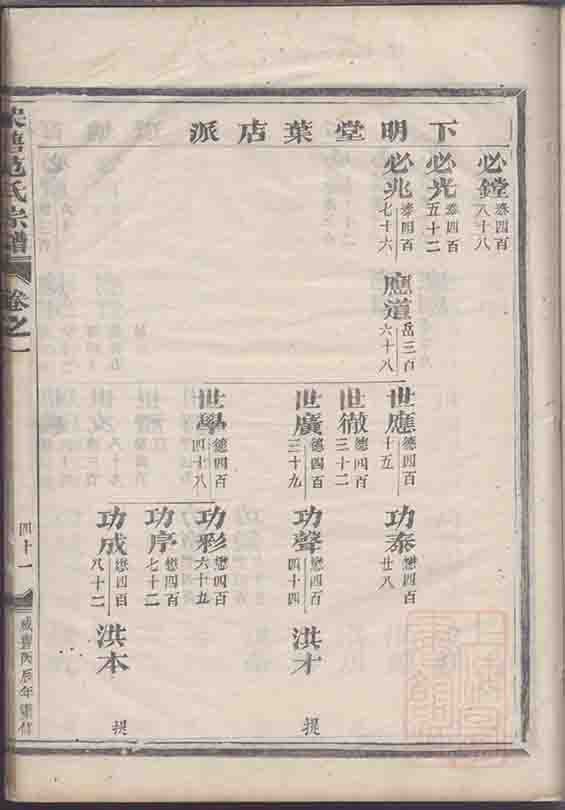 下明堂葉店派
必鏜 泰四百八十八
必光 泰四百五十二
必兆 泰四百七十六
應道 岳三百六十八
世應 德四百十五
世徹 德四百三十二
世廣 德四百三十九
世學 德四百四十八
功泰 懋四百廿八
功聲 懋四百四十四
功彩 懋四百六十五
功序 懋四百七十二
功成 懋四百八十二
洪才
洪本
提
提
范氏宗譜
卷之一
四十一
咸豐丙辰年重修